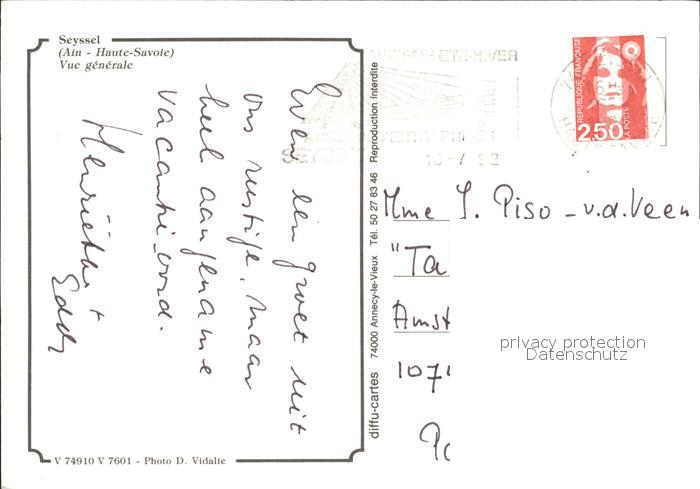 Seyssel
(Ain - Haute-Savoie)
Vue générale
Even een groet uit
ons rustige, maar
heel aangename
vacantieoord.
Henriëtte +
Eddy
V 74910 V 7601 - Photo D. Vidalie
diffu-cartes 74000 Annecy-le-Vieux Tél. 50 27 83 46 Reproduction interdite
16-7 92
REPUBLIQUE FRANÇAISE
2,50
LA POSTE
Mme J. Piso - v.d. Veen
"Ta
Amst
1071
privacy protection
Datenschutz